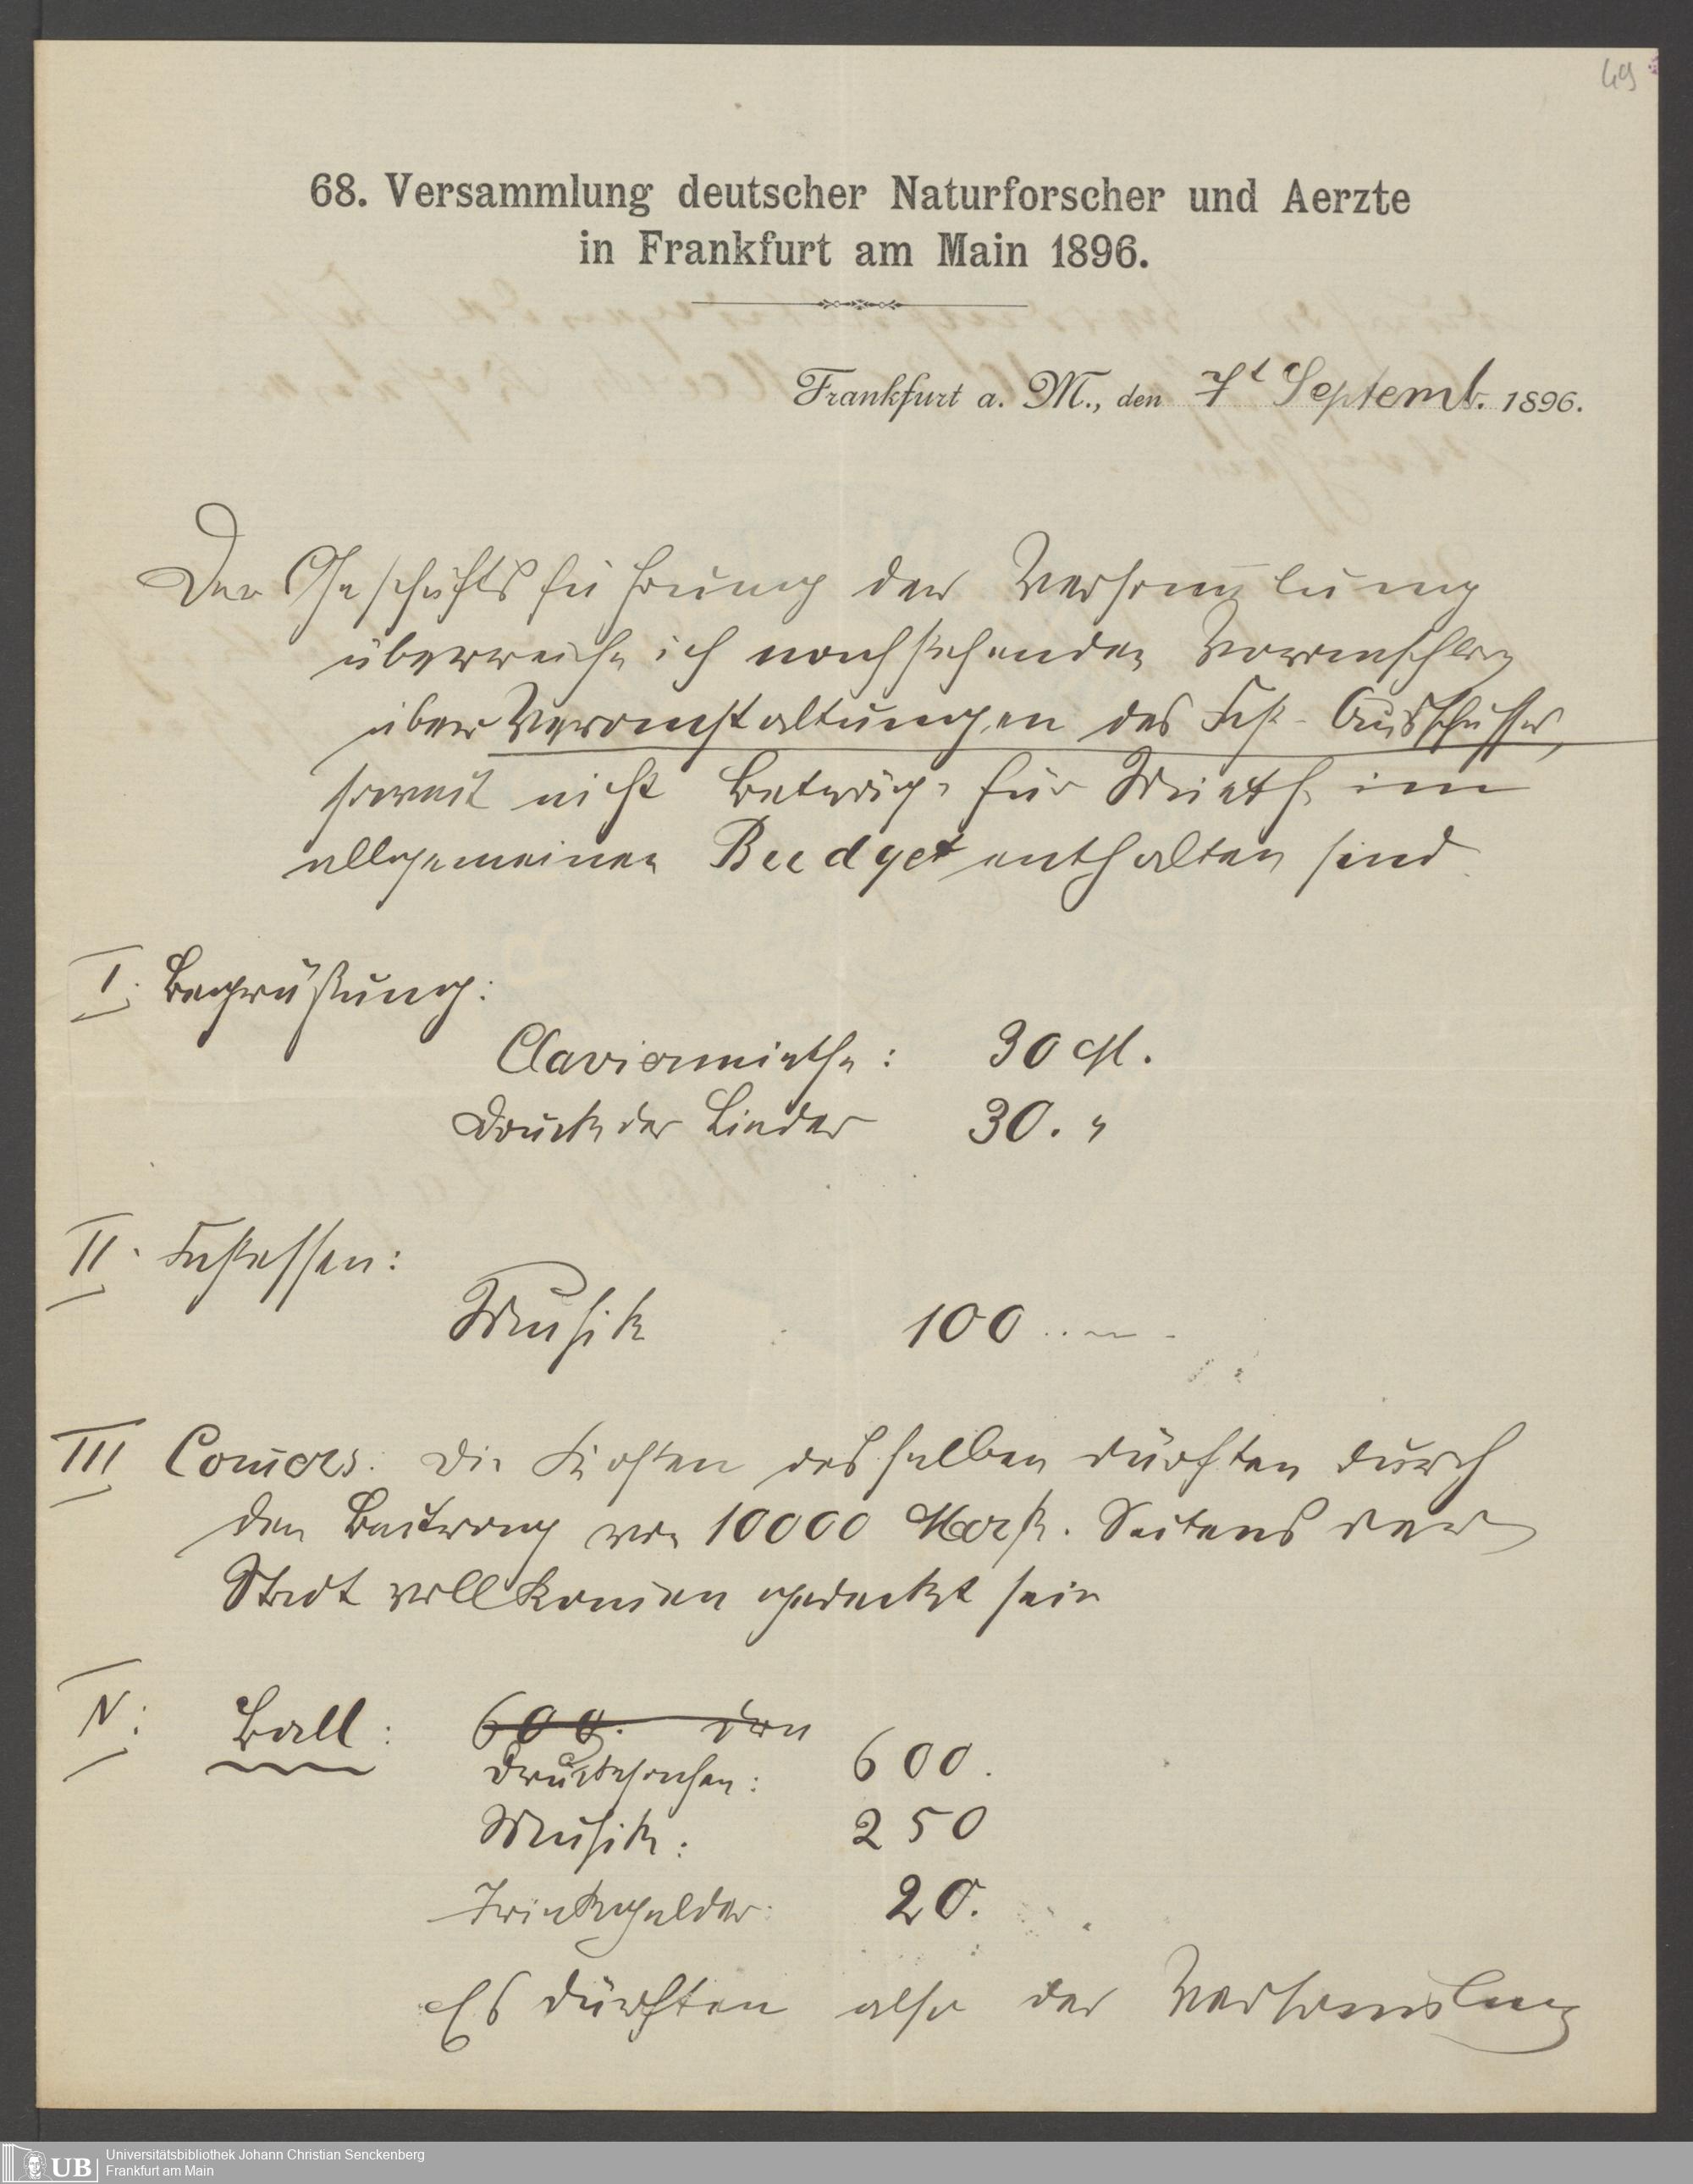 49
68. Versammlung deutscher Naturforscher und Aerzte
in Frankfurt am Main 1896.
Frankfurt a. M., den 7t Septemb. 1896.
Der Geschäftsführung der Versam̄lung
überreiche ich nachstehenden Voranschlag
über Veranstaltungen des Fest-Ausschusses,
soweit nicht Beträge für Miethe im
allgemeinen Budget enthalten sind
I. Begrüßung:
Claviermiethe: 30 M.
Druck der Lieder 30. "
II. Festessen:
Musik 100
III Com̄ers: Die Kosten desselben dürften durch
den Beitrag von 10000 Mark. Seitens der
Stadt vollkom̄en gedeckt sein
IV: Ball: 600.
Drucksachen: 600.
Musik: 250
Trinkgelder: 20.
Es dürften also der Versam̄lung
UB Universitätsbibliothek Johann Christian Senckenberg
Frankfurt am Main